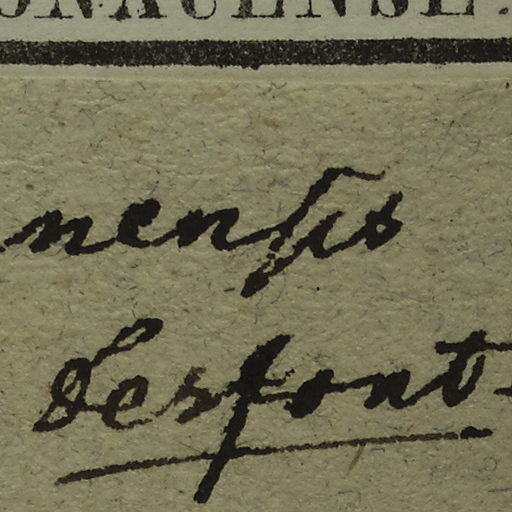 ONAUENSE.
nensis
Desfont